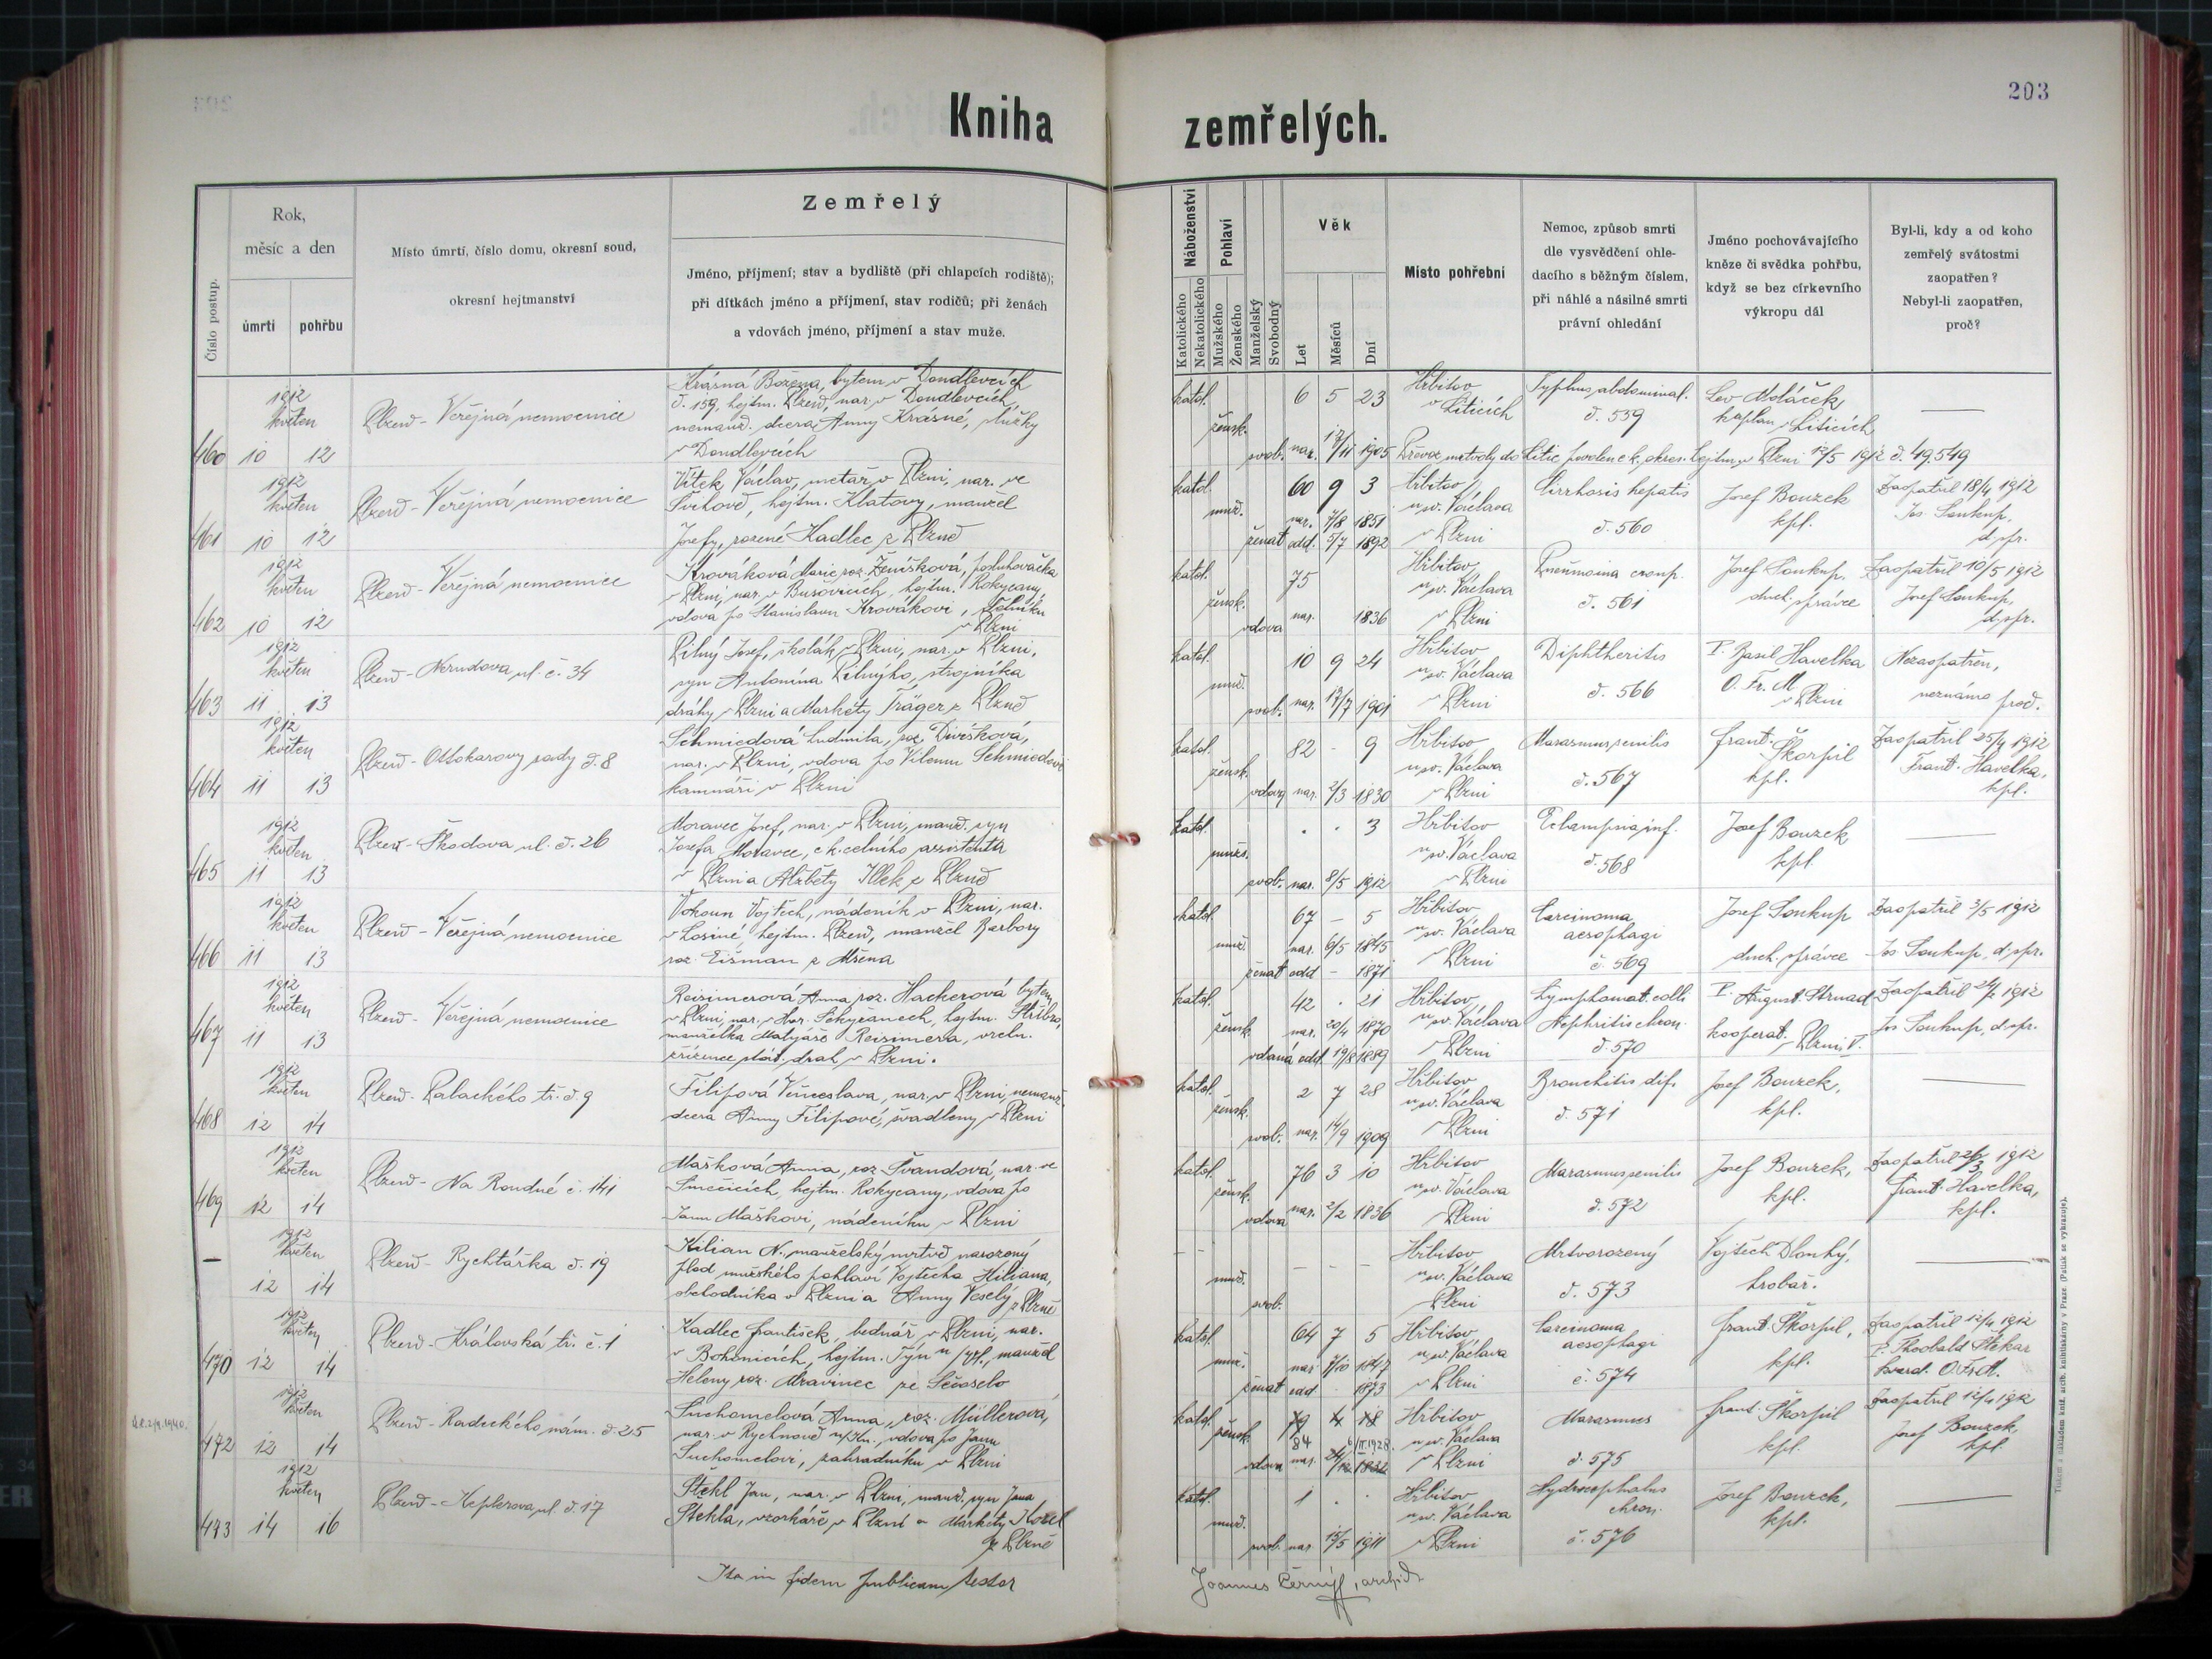 203
Kniha zemřelých.
Číslo postup.
Rok,
měsíc a den
úmrtí
pohřbu
Místo úmrtí, číslo domu, okresní soud,
okresní hejtmanství
Zemřelý
Jméno, příjmení; stav a bydliště (při chlapcích rodiště);
při dítkách jméno a příjmení, stav rodičů; při ženách
a vdovách jméno, příjmení a stav muže.
Náboženství
Katolického
Nekatolického
Pohlaví
Mužského
Ženského
Manželský
Svobodný
Věk
Let
Měsíců
Dní
Místo pohřební
Nemoc, způsob smrti
dle vysvědčení ohle-
dacího s běžným číslem,
při náhlé a násilné smrti
právní ohledání
Jméno pochovávajícího
kněze či svědka pohřbu,
když se bez církevního
výkropu dál
Byl-li, kdy a od koho
zemřelý svátostmi
zaopatřen?
Nebyl-li zaopatřen,
proč?
460
1912
květen
10 12
Plzeň - Veřejná nemocnice
Krásná Božena, bytem v Doudlevcích
č. 159, hejtm. Plzeň, nar. v Doudlevcích,
nemanž. dcera Anny Krásné, služky
v Doudlevcích
katol.
žensk.
svob.
6 5 23
nar. 17/11 1905
Hřbitov
v Liticích
Typhus abdominal.
č. 559
Lev Moláček
kaplan v Liticích
—
Převoz mrtvoly do Litic povolen c. k. okres. hejtm. v Plzni 1912 č. 49.549
461
1912
květen
10 12
Plzeň - Veřejná nemocnice
Vítek Václav, metař v Plzni, nar. ve
Švihově, hejtm. Klatovy, manžel
Josefy, rozené Kadlec z Plzně
katol.
muž.
ženat
60 9 3
nar. 7/8 1851
odd. 5/7 1892
Hřbitov
u sv. Václava
v Plzni
Cirrhosis hepatis
č. 560
Josef Bouzek
kpl.
Zaopatřil 18/4 1912
Jos. Soukup,
d. spr.
462
1912
květen
10 12
Plzeň - Veřejná nemocnice
Krováková Marie roz. Ženíšková, posluhovačka
v Plzni, nar. v Bušovicích, hejtm. Rokycany,
vdova po Stanislavu Krovákovi,
v Plzni
katol.
žensk.
vdova
75
nar. 1836
Hřbitov
u sv. Václava
v Plzni
Pneumonia croup.
č. 561
Josef Soukup,
duch. správce
Zaopatřil 10/5 1912
Josef Soukup,
d. spr.
463
1912
květen
11 13
Plzeň - Nerudova ul. č. 34
Pilný Josef, školák v Plzni, nar. v Plzni,
syn Antonína Pilnýho, strojníka
dráhy v Plzni a Markéty Träger z Plzně
katol.
muž.
svob.
10 9 24
nar. 17/7 1901
Hřbitov
u sv. Václava
v Plzni
Diphtheritis
č. 566
P. Basil Havelka
O. Fr. M.
v Plzni
Nezaopatřen,
neznámo proč.
464
1912
květen
11 13
Plzeň - Ottokarovy sady č. 8
Schmiedová Ludmila, roz. Divišková,
nar. v Plzni, vdova po Vilému Schmiedovi
kamnáři v Plzni
katol.
žensk.
vdova
82 - 9
nar. 2/3 1830
Hřbitov
u sv. Václava
v Plzni
Marasmus senilis
č. 567
Frant. Škorpil
kpl.
Zaopatřil 25/4 1912
Frant. Havelka,
kpl.
465
1912
květen
11 13
Plzeň - Škodova ul. č. 26
Moravec Josef, nar. v Plzni, manž. syn
Josefa Moravce, c. k. celního assistenta
v Plzni a Alžběty Illek z Plzně
katol.
mužs.
svob.
. . 3
nar. 8/5 1912
Hřbitov
u sv. Václava
v Plzni
Eclampsia inf.
č. 568
Josef Bouzek
kpl.
—
466
1912
květen
11 13
Plzeň - Veřejná nemocnice
Vokoun Vojtěch, nádeník v Plzni, nar.
v Losiné, hejtm. Plzeň, manžel Barbory
roz. Eišman z
katol.
muž.
ženat
67 - 5
nar. 6/5 1845
odd - 1871
Hřbitov
u sv. Václava
v Plzni
Carcinoma
aesophagi
č. 569
Josef Soukup
duch. správce
Zaopatřil 3/5 1912
Jos. Soukup, d. spr.
467
1912
květen
11 13
Plzeň - Veřejná nemocnice
Reisimerová Anna, roz. Hackerová bytem
v Plzni, nar. v Hor. Sekyřanech, hejtm. Stříbro,
manželka Matyáše Reisimera, vrchn.
zřízence stát. drah v Plzni.
katol.
žensk.
vdaná
42 . 21
nar. 20/4 1870
odd. 19/8 1889
Hřbitov
u sv. Václava
v Plzni
Lymphomat. colli
Nephritis chron.
č. 570
P. August. Strnad
kooperat. v Plzni V.
Zaopatřil 1912
Jos. Soukup, d. spr.
468
1912
květen
12 14
Plzeň - Palackého tř. č. 9
Filipová Věnceslava, nar. v Plzni, nemanž.
dcera Anny Filipové, švadleny v Plzni
katol.
žensk.
svob.
2 7 28
nar. 14/9 1909
Hřbitov
u sv. Václava
v Plzni
Bronchitis dif.
č. 571
Josef Bouzek,
kpl.
—
469
1912
květen
12 14
Plzeň - Na Roudné č. 141
Mašková Anna, roz. Švandová, nar. ve
Smečicích, hejtm. Rokycany, vdova po
Janu Maškovi, nádeníku v Plzni
katol.
žensk.
vdova
76 3 10
nar. 2/2 1836
Hřbitov
u sv. Václava
v Plzni
Marasmus senilis
č. 572
Josef Bouzek,
kpl.
Zaopatřil 26/3 1912
Frant. Havelka,
kpl.
—
1912
květen
12 14
Plzeň - Rychtářka č. 19
Kilian N., manželský mrtvě narozený
plod mužského pohlaví Vojtěcha Kiliana,
obchodníka v Plzni a Anny Veselý z Plzně
- -
muž.
svob.
- - -
Hřbitov
u sv. Václava
v Plzni
Mrtvorozený
č. 573
Vojtěch Dlouhý,
hrobař.
—
470
1912
květen
12 14
Plzeň - Královská tř. č. 1
Kadlec František, bednář v Plzni, nar.
v Bohonicích, hejtm. Týn n/Vlt., manžel
Heleny roz. Mravinec ze
katol.
muž.
ženat
64 7 5
nar. 7/10 1847
odd . 1873
Hřbitov
u sv. Václava
v Plzni
Carcinoma
aesophagi
č. 574
Frant. Škorpil,
kpl.
Zaopatřil 12/4 1912
P. Theobald
kvard. O. Fr. M.
472
1912
květen
12 14
Plzeň - Radeckého nám. č. 25
Suchomelová Anna, roz. Müllerová,
nar. v Rychnově n/Kn., vdova po Janu
Suchomelovi, zahradníku v Plzni
katol.
žensk.
vdova
79 4 18
84 6/II. 1928.
nar. 24/12 1832
Hřbitov
u sv. Václava
v Plzni
Marasmus
č. 575
Frant. Škorpil
kpl.
Zaopatřil 12/4 1912
Josef Bouzek,
kpl.
473
1912
květen
14 16
Plzeň - Keplerova ul. č. 17
Štekl Jan, nar. v Plzni, manž. syn Jana
Štekla, vzorkáře v Plzni a Markéty
z Plzně
katol.
muž.
svob.
1 . .
nar. 15/5 1911
Hřbitov
u sv. Václava
v Plzni
Hydrocephalus
chron.
č. 576
Josef Bouzek,
kpl.
—
Ita in fidem publicam testor
Joannes Černý, archid.